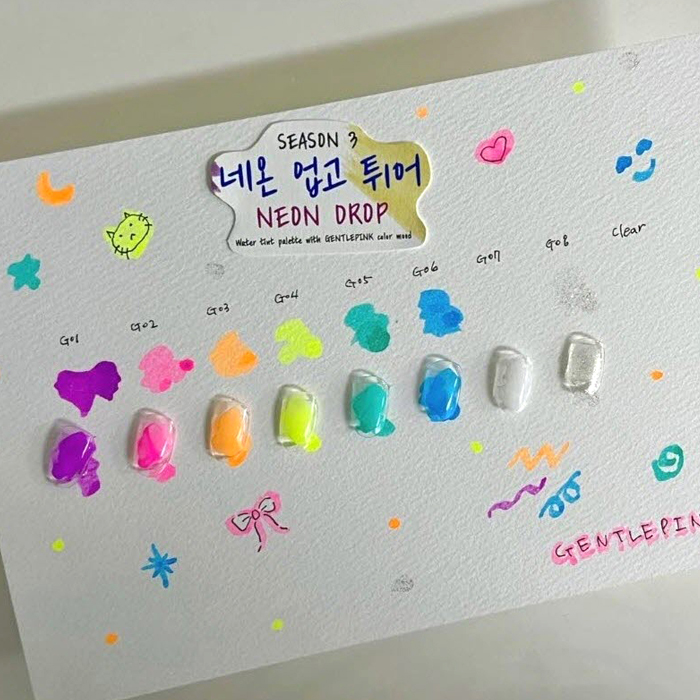 SEASON 3
네온 업고 튀어
NEON DROP
Water tint palette with GENTLEPINK color mood
G01 G02 G03 G04 G05 G06 G07 G08 Clear
GENTLEPIN